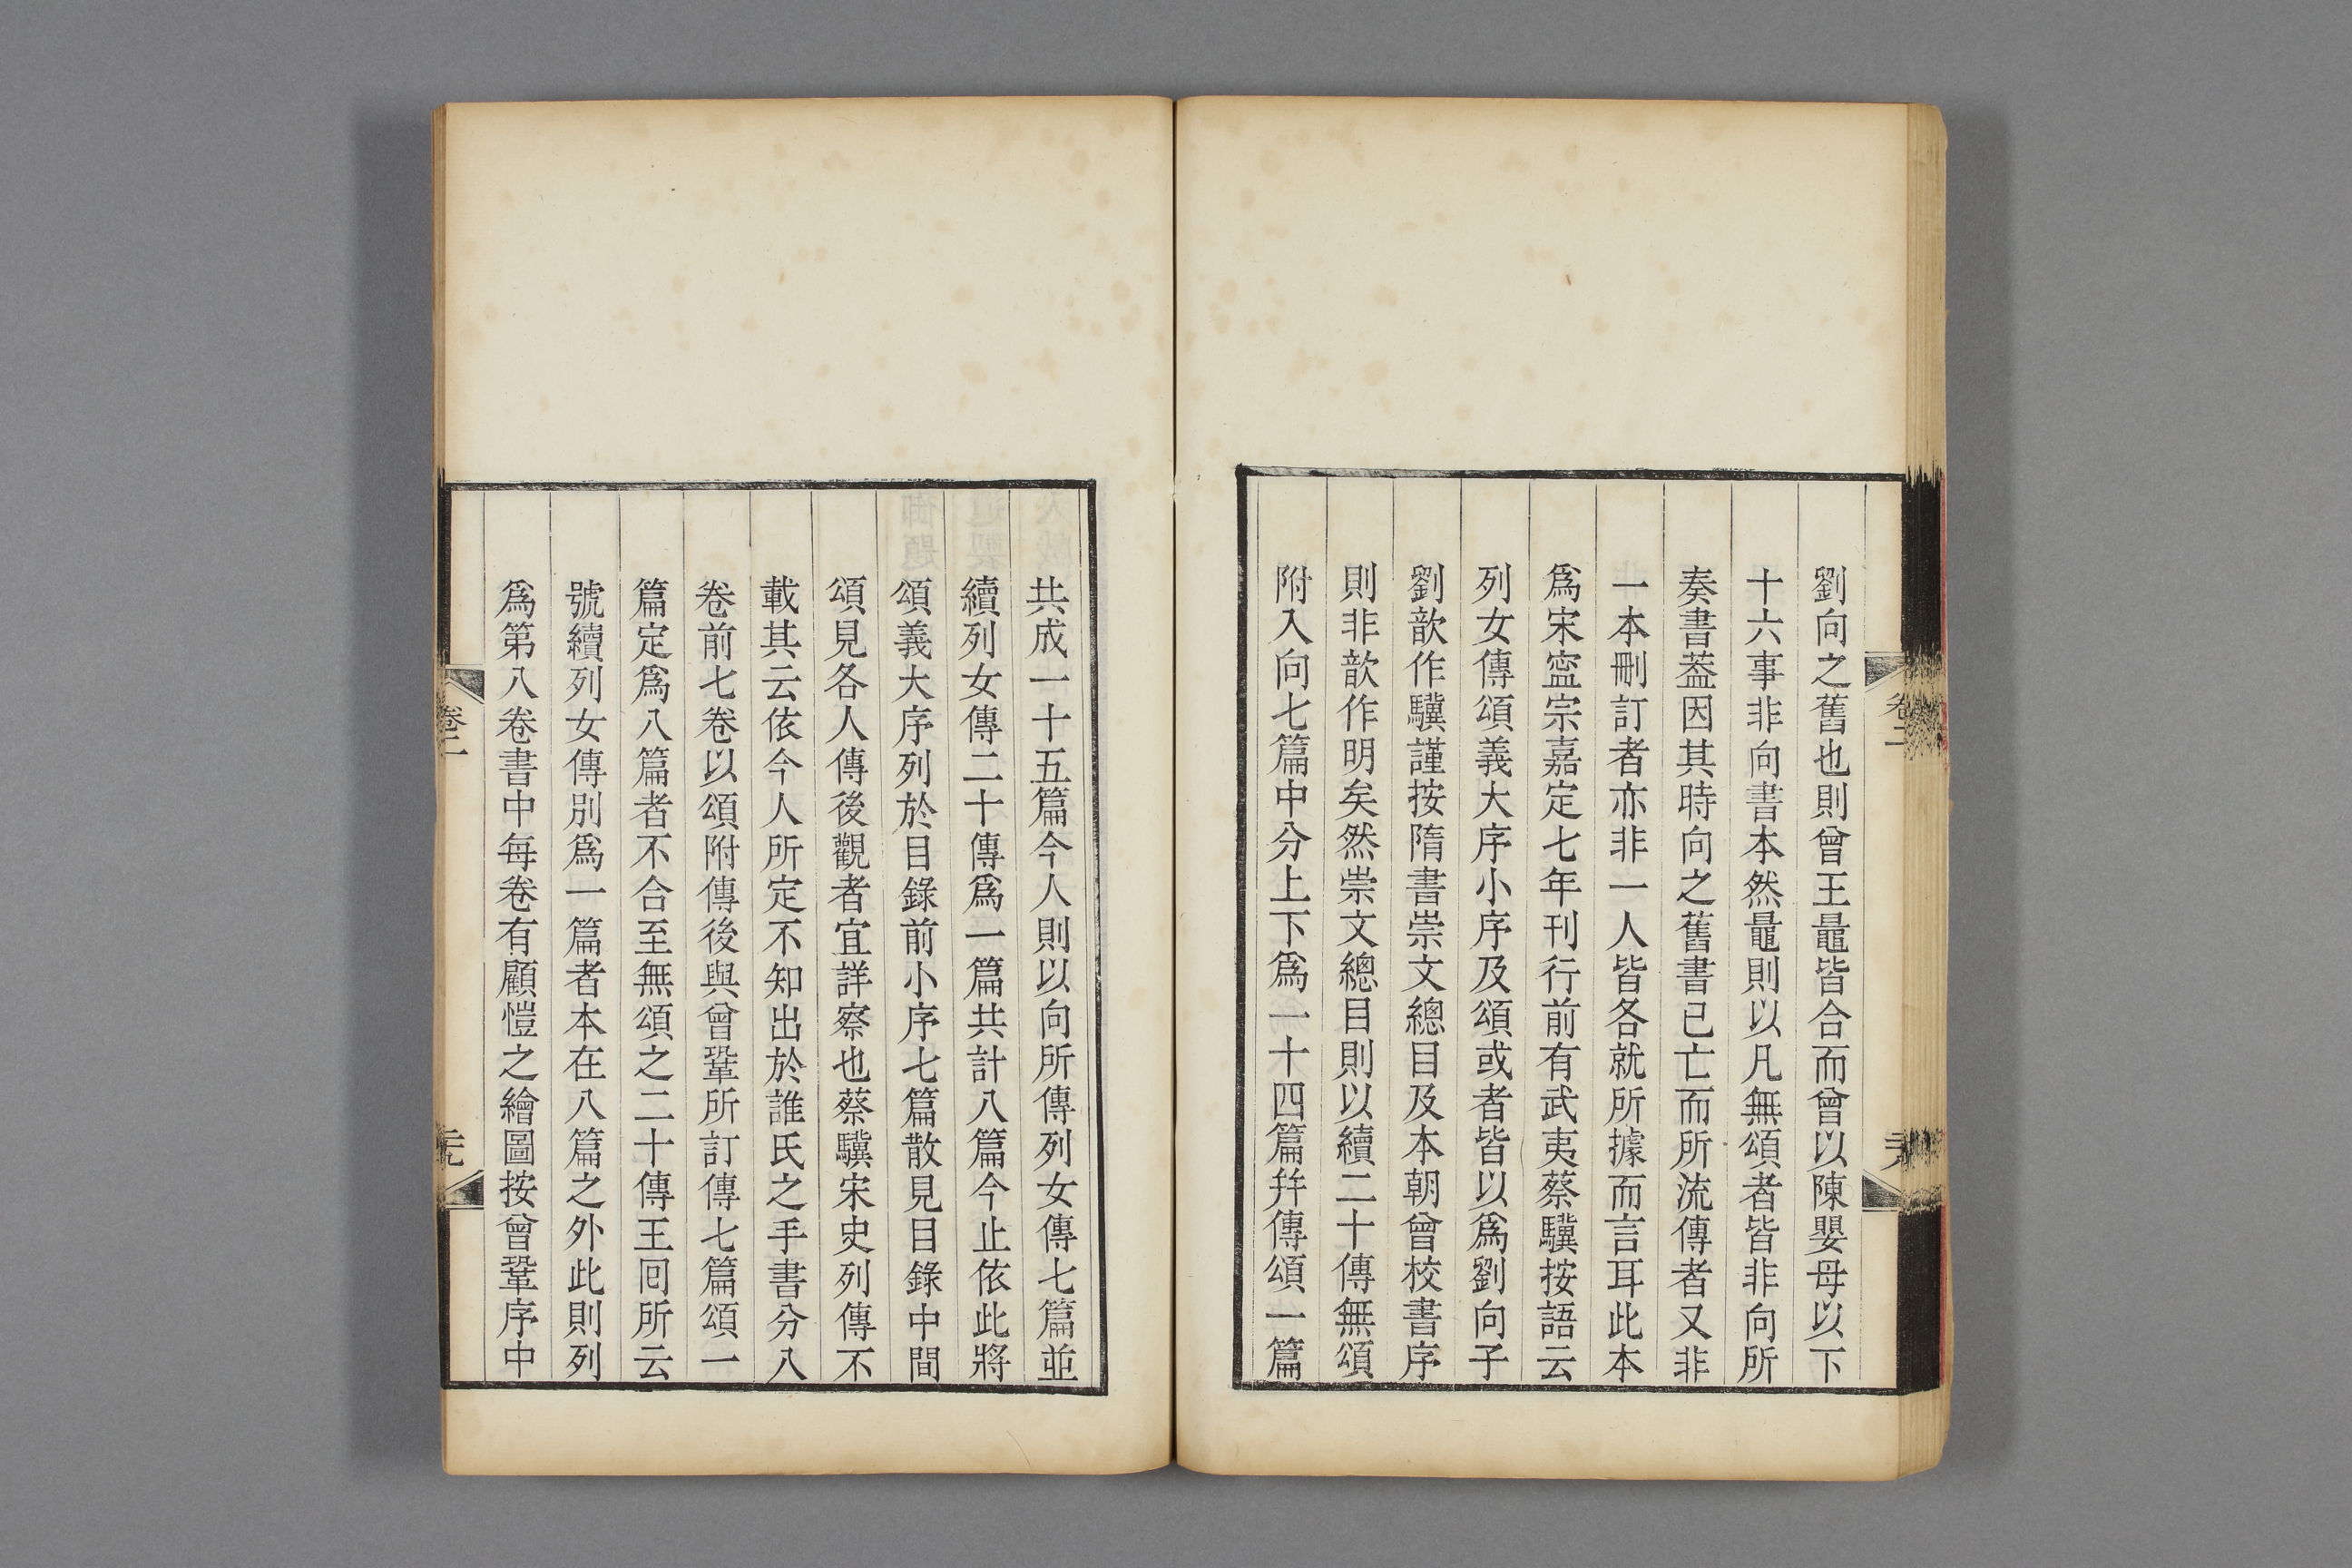 劉向之舊也則曾王鼂皆合而曾以陳嬰母以下
十六事非向書本然鼂則以凡無頌者皆非向所
奏書葢因其時向之舊書已亡而所流傳者又非
一本刪訂者亦非一人皆各就所據而言耳此本
爲宋寍宗嘉定七年刊行前有武夷蔡驥按語云
列女傳頌義大序小序及頌或者皆以爲劉向子
劉歆作驥謹按隋書崇文總目及本朝曾校書序
則非歆作明矣然崇文總目則以續二十傳無頌
附入向七篇中分上下爲一十四篇幷傳頌一篇
卷二
共成一十五篇今人則以向所傳列女傳七篇並
續列女傳二十傳爲一篇共計八篇今止依此將
頌義大序列於目錄前小序七篇散見目錄中間
頌見各人傳後觀者宜詳察也蔡驥宋史列傳不
載其云依今人所定不知出於誰氏之手書分八
卷前七卷以頌附傳後與曾鞏所訂傳七篇頌一
篇定爲八篇者不合至無頌之二十傳王回所云
號續列女傳別爲一篇者本在八篇之外此則列
爲第八卷書中每卷有顧愷之繪圖按曾鞏序中
卷二